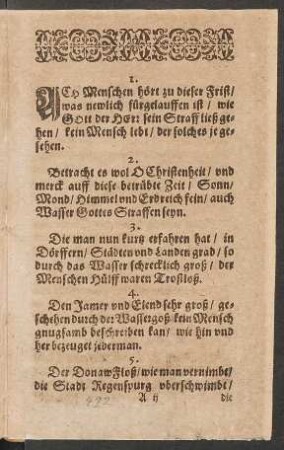 1.
ACh Menschen hört zu dieser Frist/
was newlich fürgelauffen ist / wie
Gott der Herr sein Straff ließ ge-
hen / kein Mensch lebt / der solches je ge-
sehen.
2.
Betracht es wol O Christenheit / vnd
merck auff diese betrübte Zeit / Sonn/
Mond / Himmel vnd Erdreich sein / auch
Wasser Gottes Straffen seyn.
3.
Die man nun kurtz erfahren hat / in
Dörffern / Städten vnd Landen grad / so
durch das Wasser schrecklich groß / der
Menschen Hülff waren Trostloß.
4.
Den Jamer vnd Elend sehr groß / ge-
schehen durch der Wassergoß kein Mensch
gnugsamb beschreiben kan / wie hin vnd
her bezeuget jederman.
5.
Der Donaw Floß / wie man vernimbt/
die Stadt Regenspurg vberschwimbt /
A ij
die